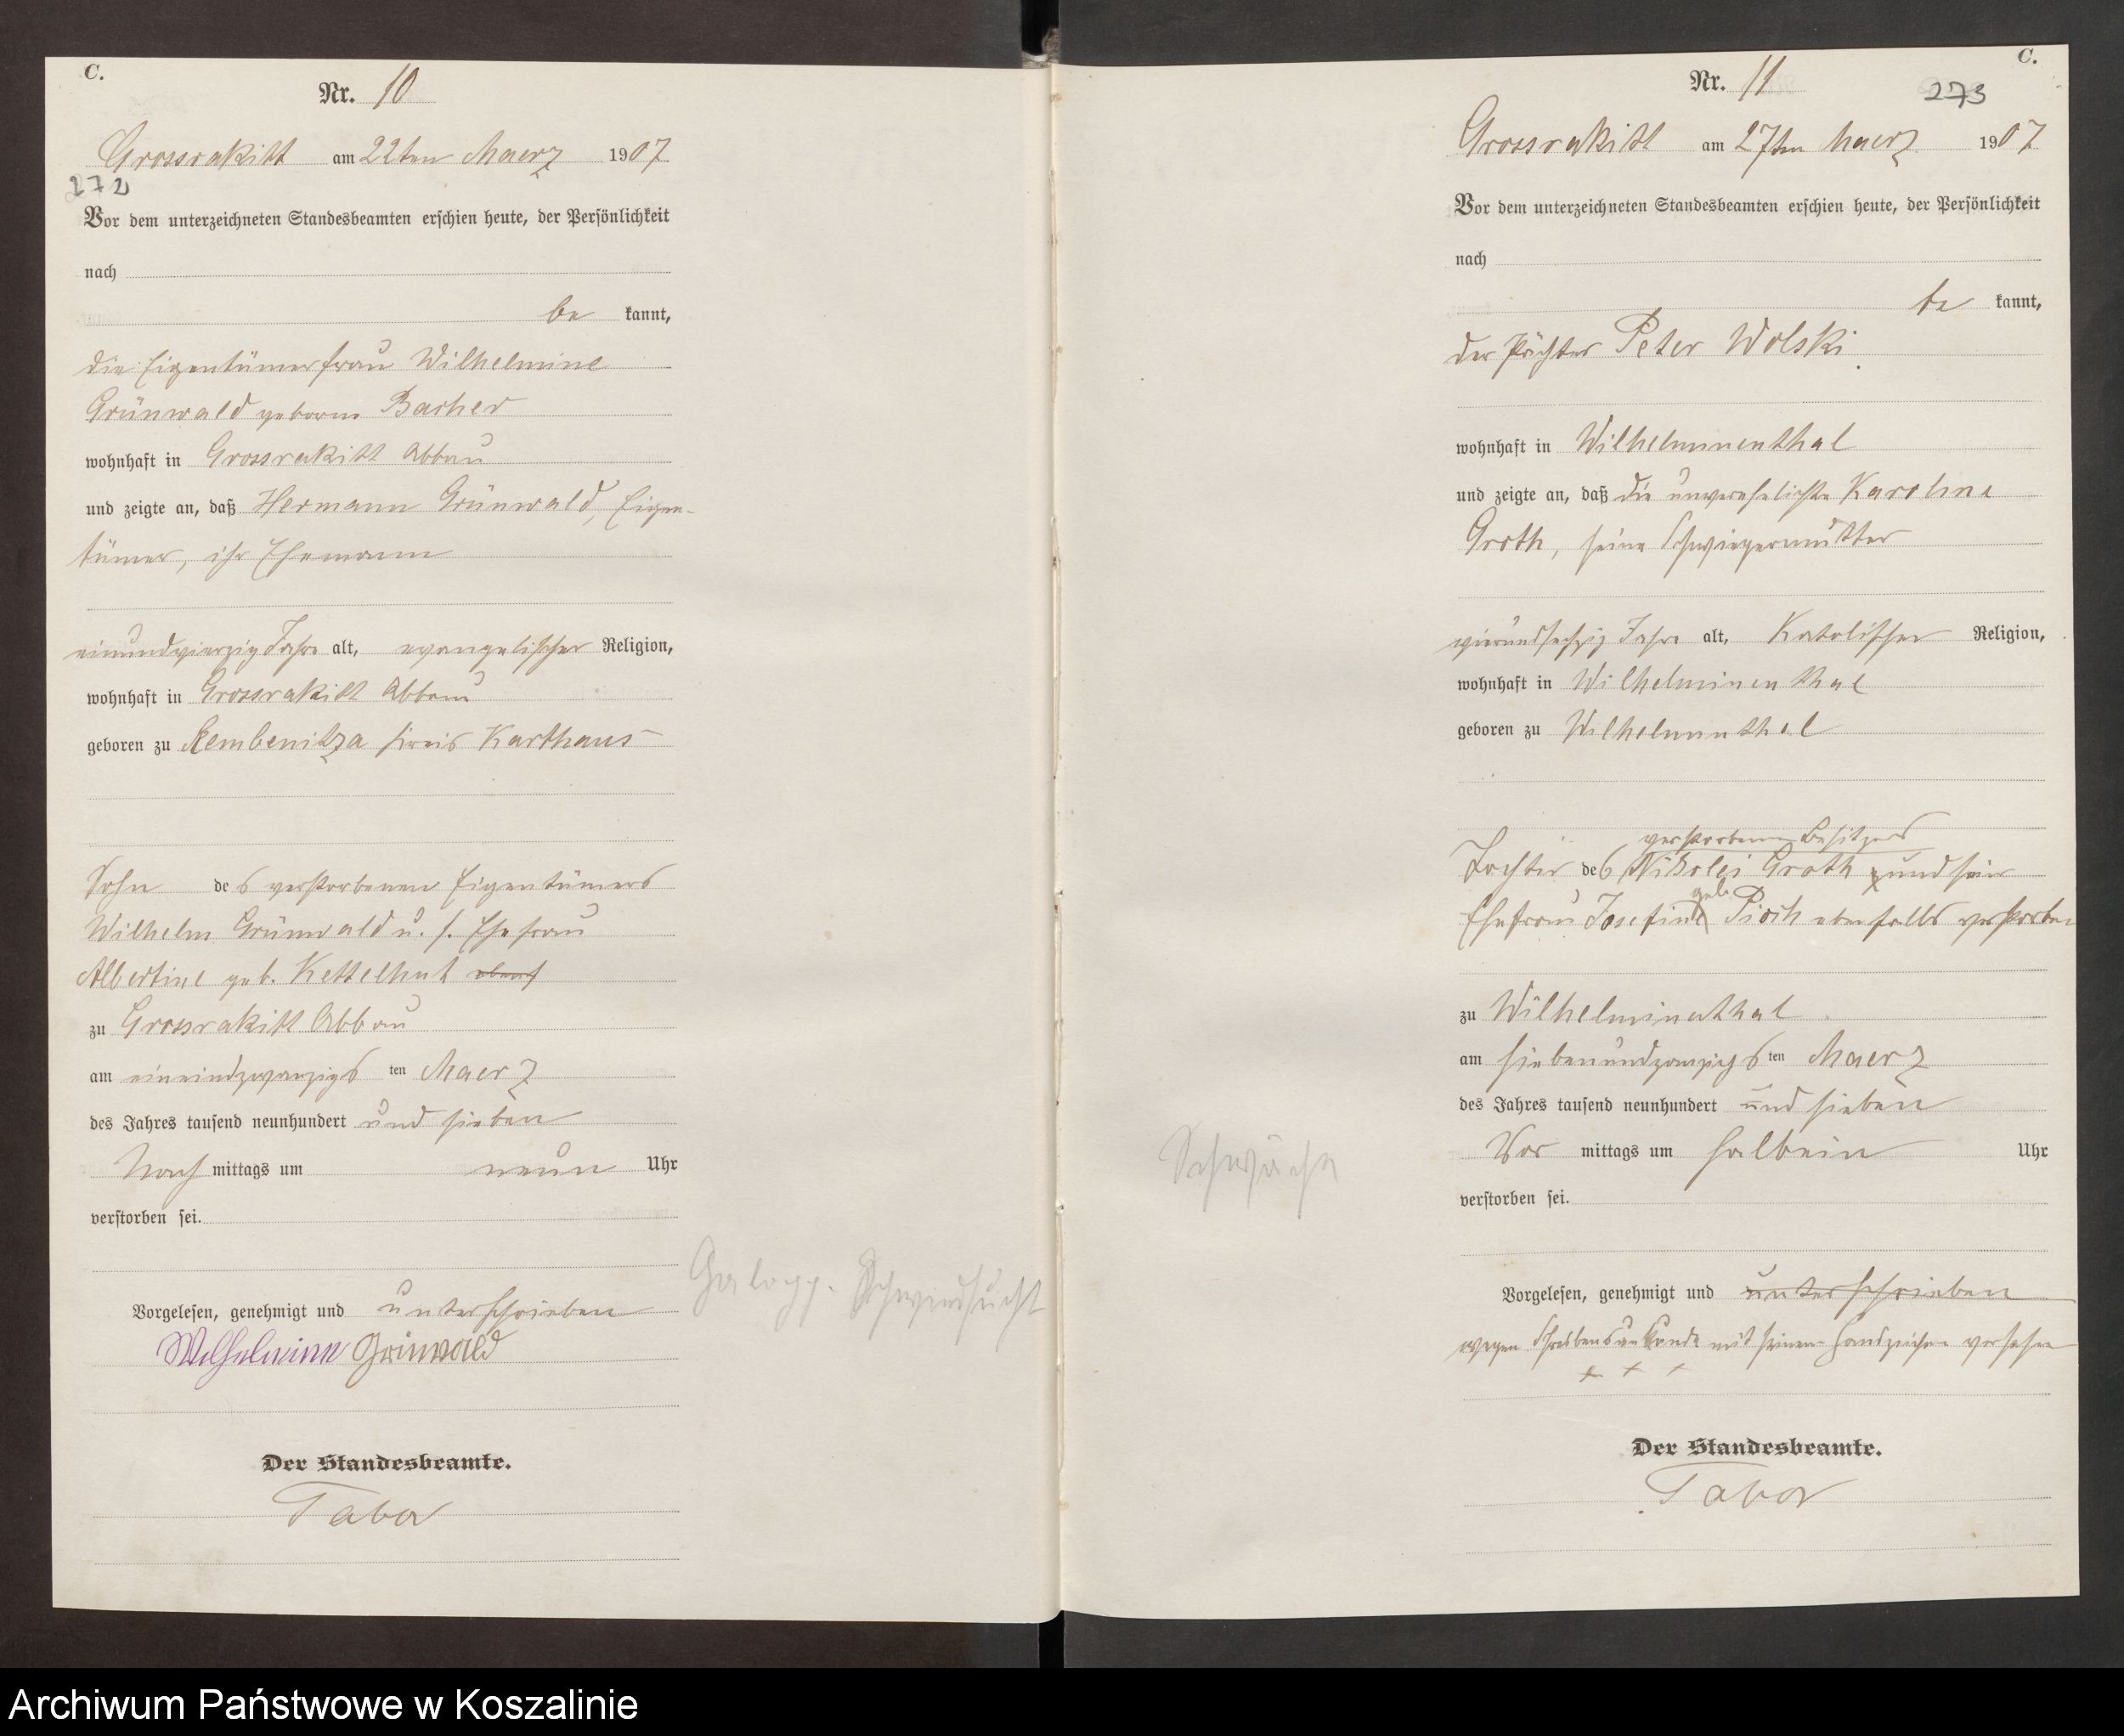 C.
Nr. 10
Grossrakitt am 22ten Maerz 1907
272
Vor dem unterzeichneten Standesbeamten erschien heute, der Persönlichkeit
nach
be kannt,
die Eigentümerfrau Wilhelmine
Grünwald geborne Bacher
wohnhaft in Grossrakitt Abbau
und zeigte an, daß Hermann Grünwald, Eigen-
tümer, ihr Ehemann
einundvierzig Jahre alt, evangelischer Religion,
wohnhaft in Grossrakitt Abbau
geboren zu Rembenitza Kreis Karthaus
Sohn des verstorbenen Eigentümers
Wilhelm Grünwald u. s. Ehefrau
Albertine geb. Kettelhut
zu Grossrakitt Abbau
am eineindzwanzigs ten Maerz
des Jahres tausend neunhundert und sieben
Nach mittags um neun Uhr
verstorben sei.
Vorgelesen, genehmigt und unterschrieben
Wilhelmine Grünwald
Der Standesbeamte.
Tabor
Galopp. Schwindsucht
C.
Nr. 11
273
Grossrakitt am 27ten Maerz 1907
Vor dem unterzeichneten Standesbeamten erschien heute, der Persönlichkeit
nach
be kannt,
der Pächter Peter Wolski
wohnhaft in Wilhelminenthal
und zeigte an, daß die unverehelichte Karoline
Groth, seine Schwiegermutter
vierundsechzig Jahre alt, Katolischer Religion,
wohnhaft in Wilhelminenthal
geboren zu Wilhelminenthal
verstorbenen Besitzers
Tochter des Nikolei Groth und seiner
geb.
Ehefrau Josefine Pioch ebenfalls verstorben
zu Wilhelminenthal
am siebenundzwanzigs ten Maerz
des Jahres tausend neunhundert und sieben
Vor mittags um halbein Uhr
verstorben sei.
Schwäche
Vorgelesen, genehmigt und unterschrieben
wegen Schreibensunkunde mit seinem Handzeichen versehen
+ + +
Der Standesbeamte.
Tabor
Archiwum Państwowe w Koszalinie